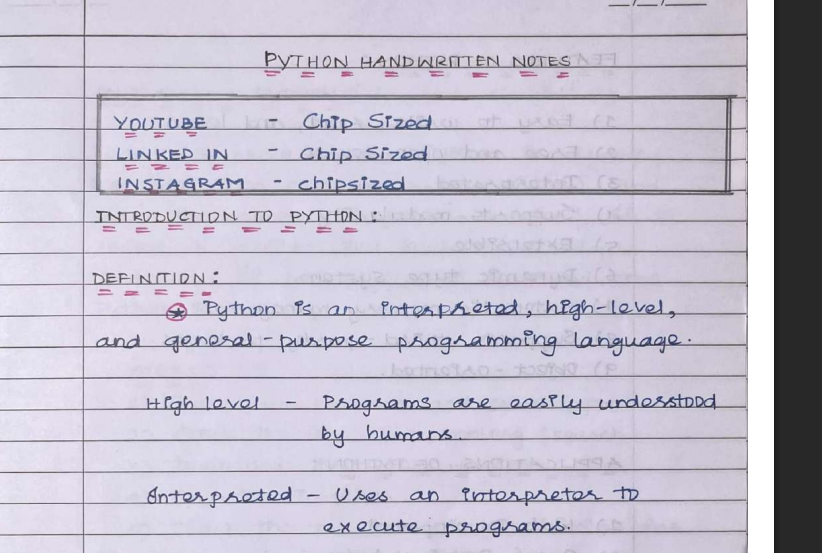 PYTHON HANDWRITTEN NOTES
YOUTUBE - Chip Sized
LINKED IN - Chip Sized
INSTAGRAM - chipsized
INTRODUCTION TO PYTHON :
DEFINITION :
Python is an interpreted, high-level,
and general-purpose programming language.
High level - Programs are easily understood
by humans.
Interpreted - Uses an interpreter to
execute programs.